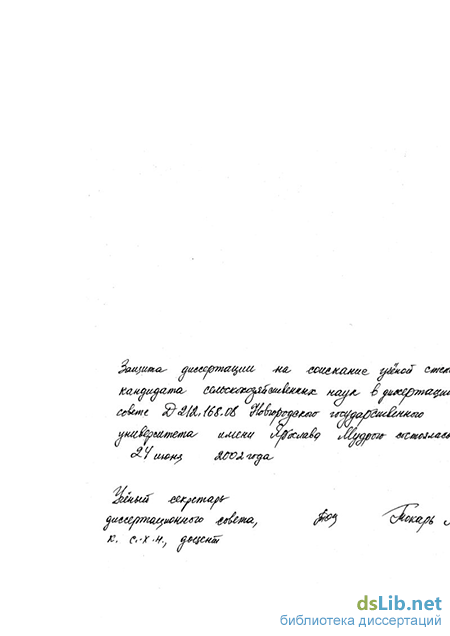 Защита диссертации на соискание учёной степ
кандидата сельскохозяйственных наук в диссертаци
совете Д 212.168.08 Новгородского государственного
университета имени Ярослава Мудрого состоялась
24 июня 2002 года
Учёный секретарь
диссертационного совета, Токарь
к. с.-х. н., доцент
dsLib.net
библиотека диссертаций